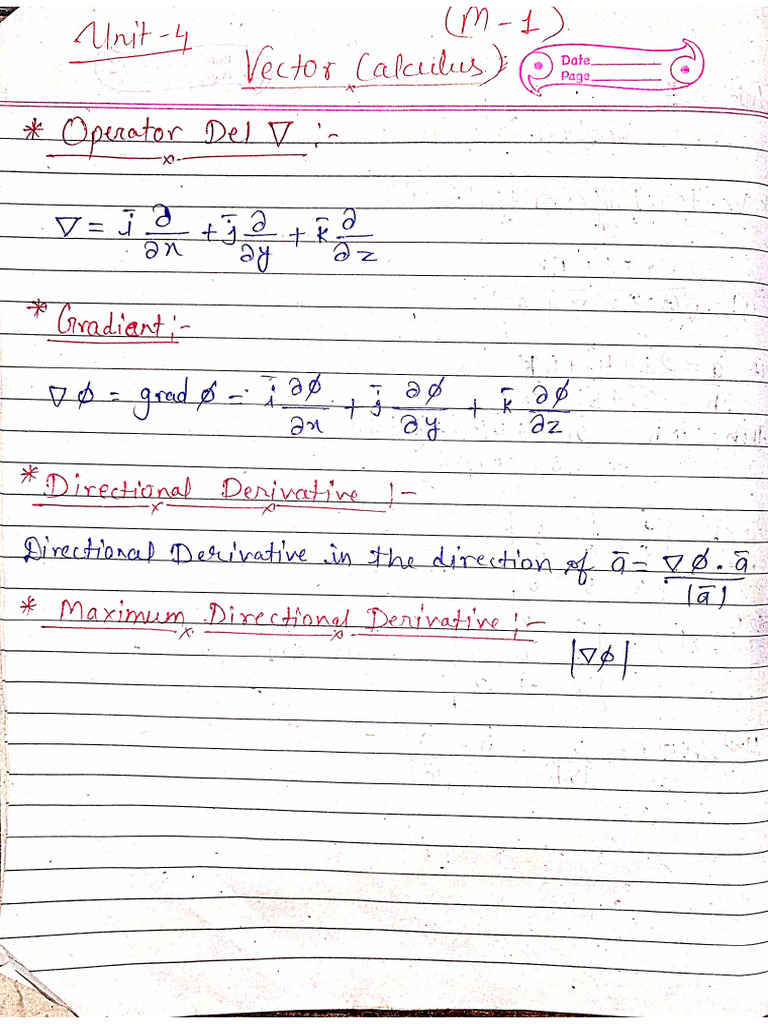 Unit-4
(M-1)
Vector Calculus :
Date
Page
* Operator Del ∇ :-
∇ = i̅ ∂/∂x + j̅ ∂/∂y + k̅ ∂/∂z
* Gradient :-
∇ϕ = grad ϕ = i̅ ∂ϕ/∂x + j̅ ∂ϕ/∂y + k̅ ∂ϕ/∂z
* Directional Derivative :-
Directional Derivative in the direction of a̅ = ∇ϕ . a̅ / |a̅|
* Maximum Directional Derivative :-
|∇ϕ|